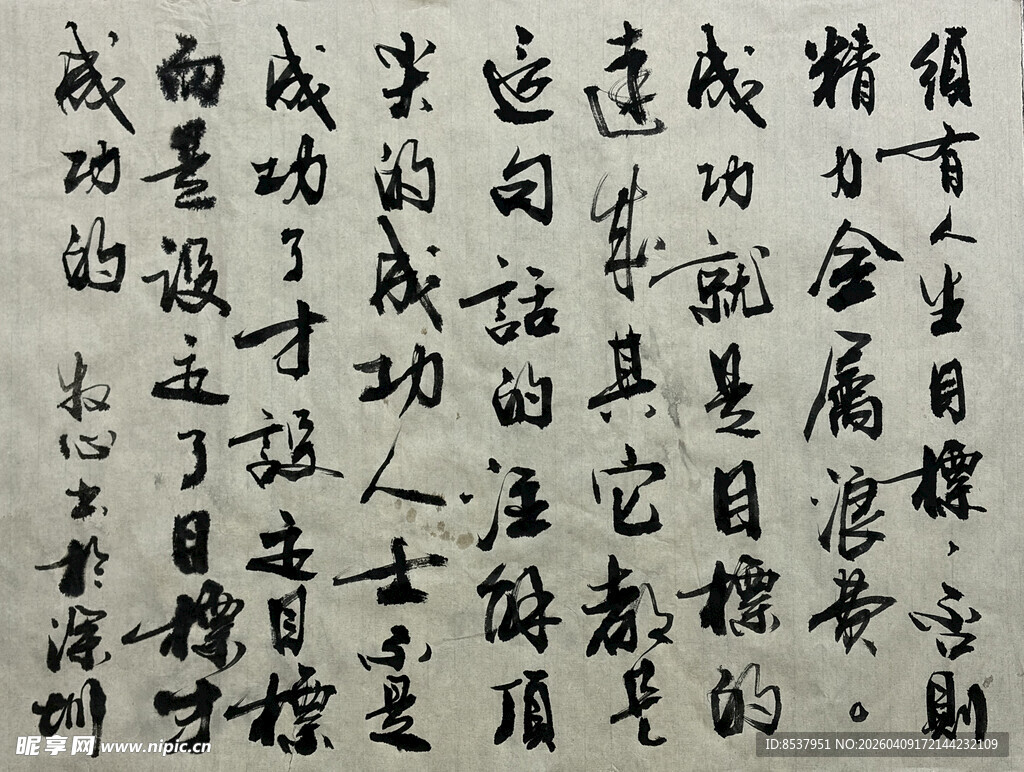 須有人生目標、否則
精力全屬浪費。
成功就是目標的
達成其它都是
這句話的注解頂
尖的成功人士不是
成功了才設定目標
而是設定了目標才
成功的 牧心書於深圳
昵享网 www.nipic.cn
ID:8537951 NO:20260409172144232109